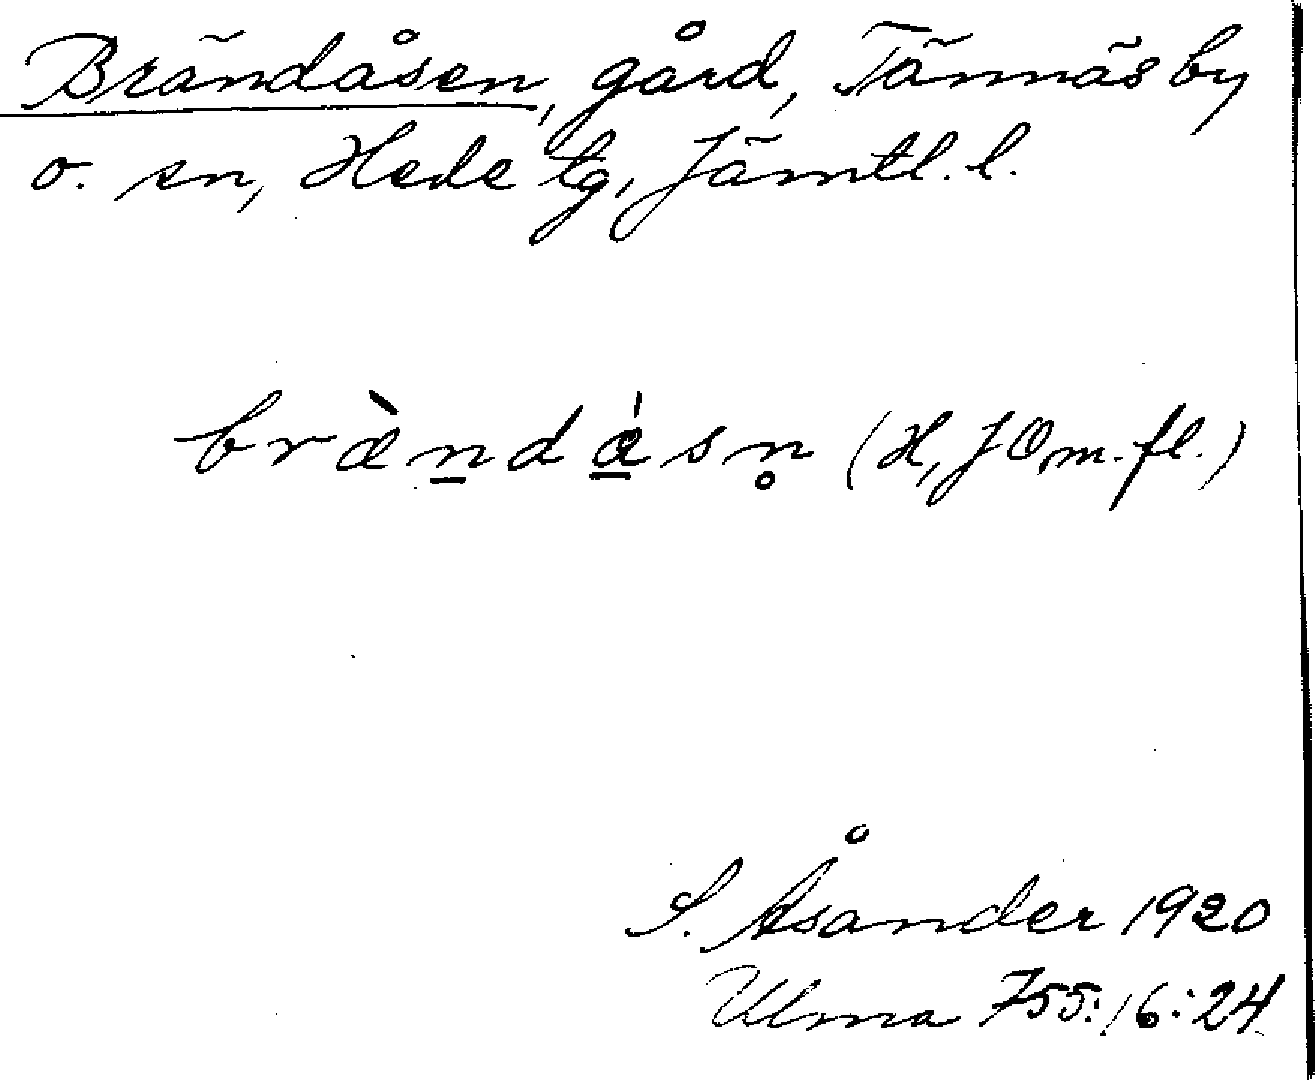 Brändåsen, gård, Tännäs by
o. sn, Hede tg, Jämtl. l.
bræ̀n̲dǽ̲sn̥ (H, JO, m. fl.)
S. Åsander 1920
Ulma 755:16:24